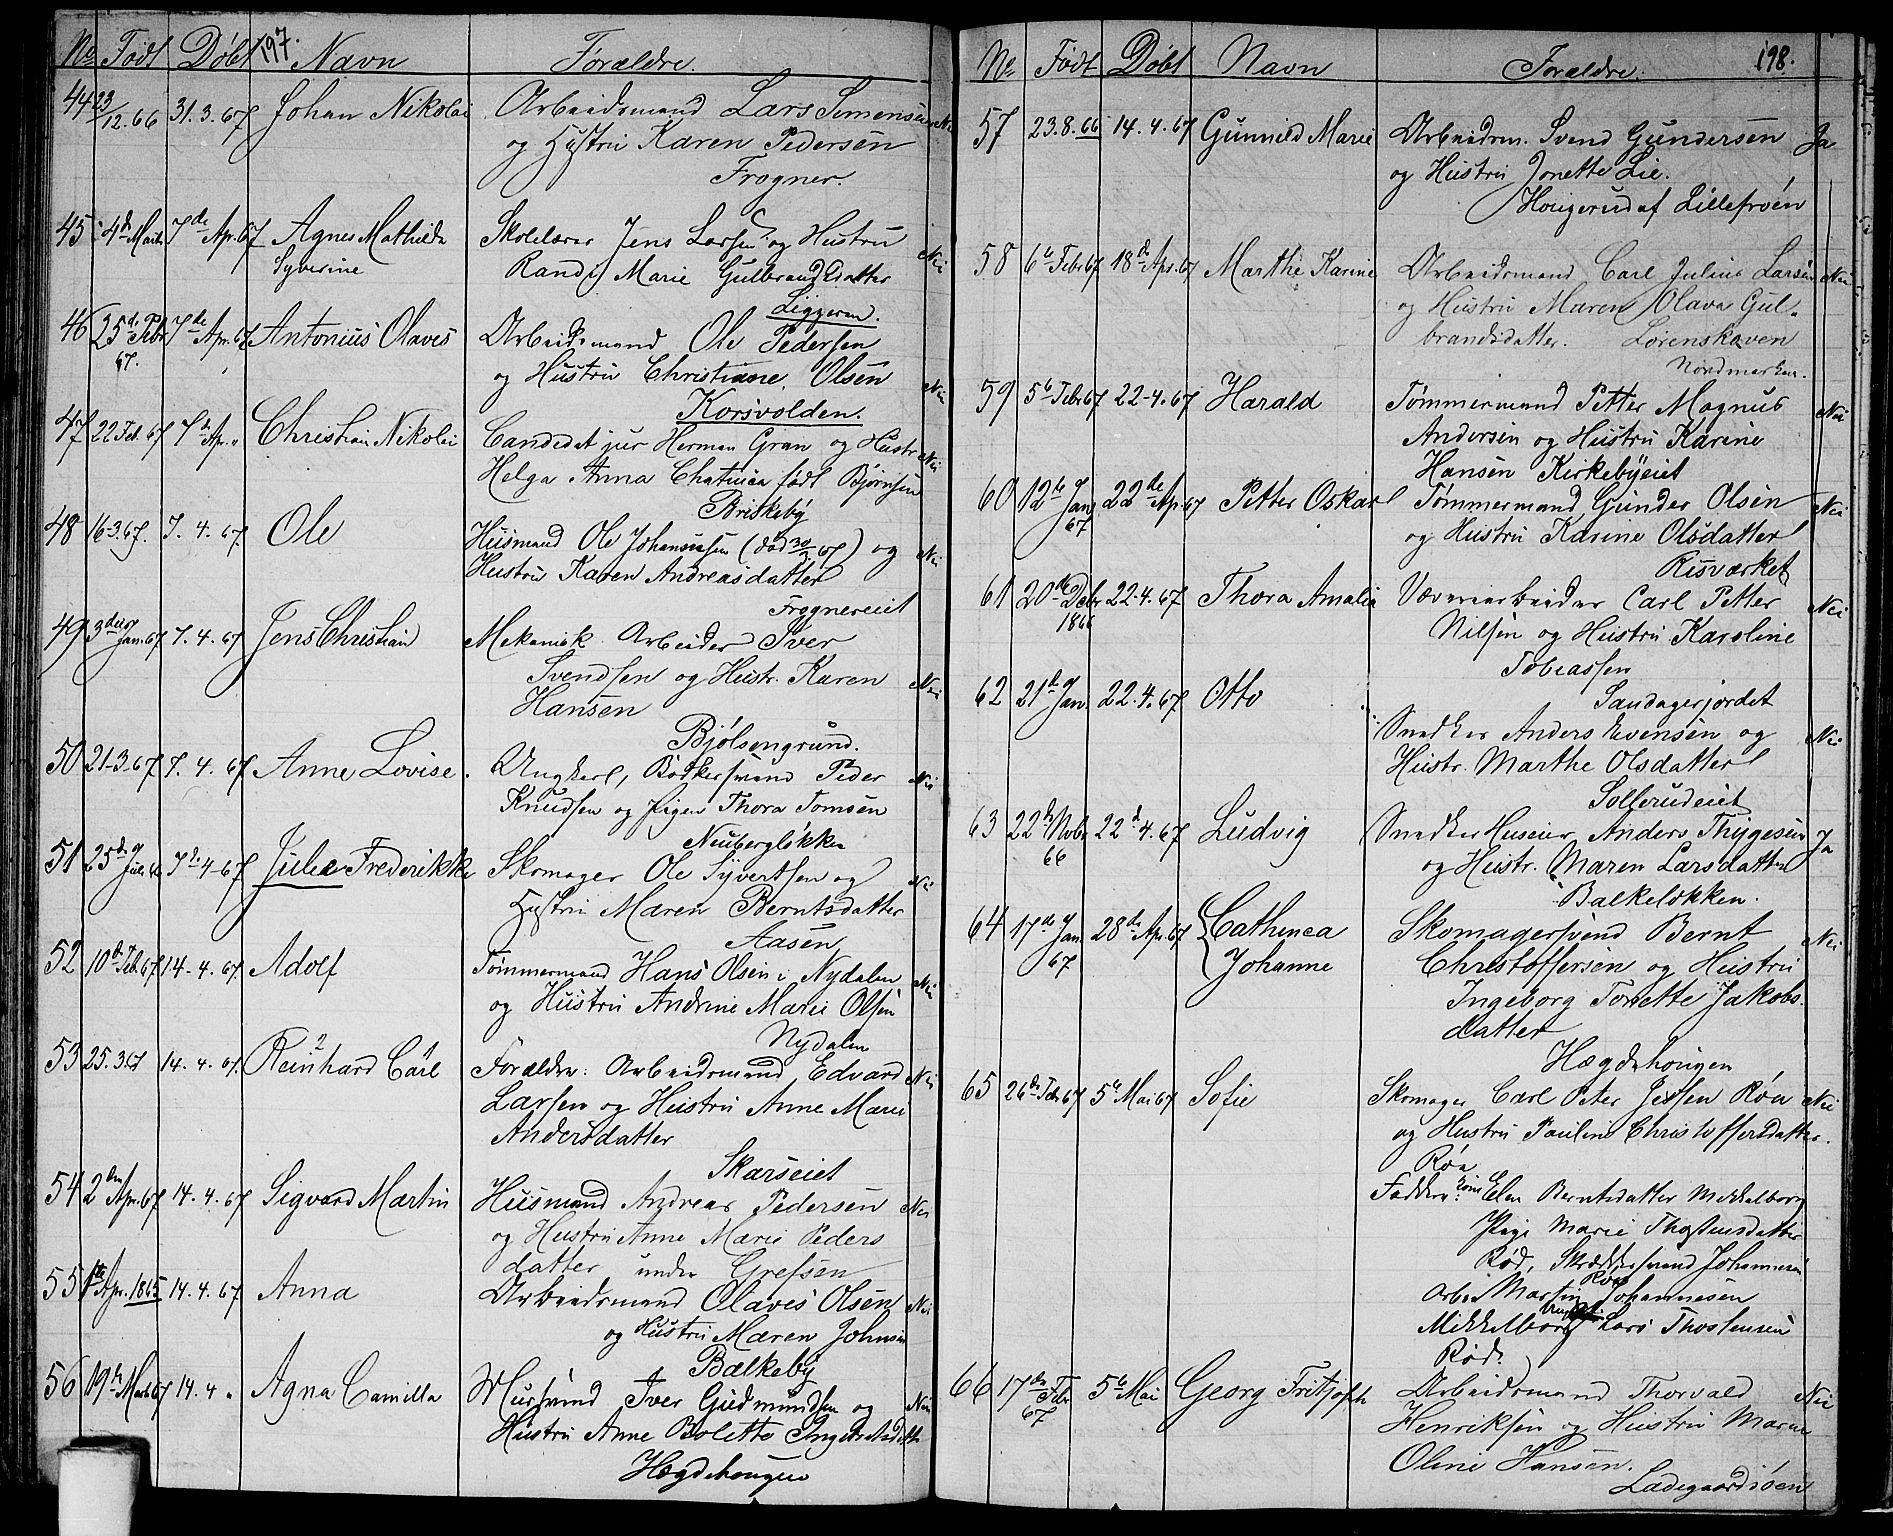 197.
No Født Døbt Navn Forældre.
44 23/12.66 31.3.67 Johan Nikolai Arbeidsmand Lars Simensen Nei
og Hustru Karen Pedersen
Frogner.
45 4de Marts 7de Apr. 67 Agnes Mathilde Skolelærer Jens Larsen og Hustru Nei
Syverine Randi Marie Gulbrandsdatter
Liggeren.
46 25de Febr 67. 7de Apr. 67 Antonius Olaves Arbeidsmand Ole Pedersen
og Hustru Christiane Olsen Nei
Korsvolden.
47 22 Feb. 67 7de Apr. " Christian Nikolai Candidat jur Herman Gran og Hustr Nei
Helga Anna Chatinca født Bjørnsen
Briskeby
48 16-3.67. 7. 4. 67. Ole Husmand Ole Johannesen (død 30/3 67) og Nei
Hustru Karen Andreasdatter
Frognereiet
49 3die Jan. 67 7. 4. 67 Jens Christian Mekanisk Arbeider Iver
Svendsen og Hustr. Karen Nei
Hansen
Bjølsengrund.
50 21-3.67 7. 4. 67 Anne Lovise. Ungkarl, Bødkersvend Peder Nei
Knudsen og Pigen Thora Tomsen
Neubergløkken
51 25de Juli 66 7de-4-67 Julie Frederikke Skomager Ole Syvertsen og Nei
Hustru Maren Berntsdatter
Aasen
52 10de Feb. 67 14-4.67. Adolf Tømmermand Hans Olsen i Nydalen Nei
og Hustru Andrine Marie Olsen
Nydalen
53 25.3.67 14. 4. 67. Reinhard Carl Forældre: Arbeidsmand Edvard Nei
Larsen og Hustru Anne Marie
Andersdatter
Skarseiet
54 2den Apr. 67 14. 4. 67 Sigvard Martin Husmand Andreas Pedersen Nei
og Hustru Anne Marie Peders
datter under Grefsen
55 1ste Apr. 1865 14. 4. 67 Anna Arbeidsmand Olaves Olsen Nei
og Hustru Maren Johnsen
Bælkeby
56 19de Marts 67 14. 4 " Agna Camilla Mursvend Iver Gudmundsen og Nei
Hustru Anne Bolette Ingebretsdatter
Hægdehougen
198.
No Født Døbt Navn Forældre.
57 23.8.66 14. 4. 67 Gunnild Marie Arbeidsm. Svend Gundersen Ja
og Hustru Jonette Lie.
Hougerud af Lillefroen
58 6te Febr 67 18de Apr. 67 Marthe Karine Arbeidsmand Carl Julius Larsen Nei
og Hustru Maren Olava Gul-
brandsdatter. Lørenskoven
Nordmarken.
59 5te Febr 67 22-4.67 Harald Tømmermand Petter Magnus Nei
Andersen og Hustru Karine
Hansen Kirkebyeiet
60 12te Jan 67 22de Apr 67 Petter Oskar Tømmermand Gunder Olsen Nei
og Hustru Karine Olsdatter
Risværket
61 20de Decbr 1866 22-4.67 Thora Amalia Væveriarbeider Carl Petter Nei
Nilsen og Hustru Karoline
Tobiassen
Sandagerjordet
62 21de Jan. 22.4.67 Otto
Snedker Anders Evensen og Nei
Hustr. Marthe Olsdatter
Sollerudeiet
63 22de Nvbr 66 22de 4.67 Ludvig Snedker Huseier Anders Thygesen Ja
og Hustr. Maren Larsdatter
Balkeløkken.
64 17de Jan 67 28de Apr. 67 Cathinca Skomagersvend Bernt Nei
Johanne Christoffersen og Hustru
Ingeborg Tonette Jakobs-
datter
Hægdehougen
65 26de Febr 67 5te Mai 67 Sofie Skomager Carl Peter Jessen Røa Nei
og Hustru Pauline Christoffersdatter.
Røa
Faddere: Kone Elen Berntsdatter Mikkelborg
Pige Marie Thostensdatter
Rød, Skræddersvend Johannesen
Røa
Arbm Martin Johannesen
Mikkelborg Lars Thostensen
Rød.
66 17de Febr 67 5te Mai Georg Fritjofh Arbeidsmand Thorvald Nei
Henriksen og Hustru Maren
Oline Hansen.
Ladegaardsøen